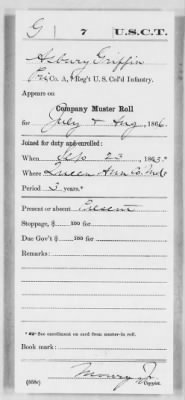 G 7 U.S.C.T.
Asbury Griffin
Priv., Co. A, 7 Reg't U. S. Col'd Infantry.
Appears on
Company Muster Roll
for July & Aug, 1866.
Joined for duty and enrolled:
When Sep 23, 1863.*
Where Queen Ann Co. Md.
Period 3 years.*
Present or absent Present
Stoppage, $ 100 for
Due Gov't $ 100 for
Remarks:
*See enrollment on card from muster-in roll.
Book mark:
Copyist.